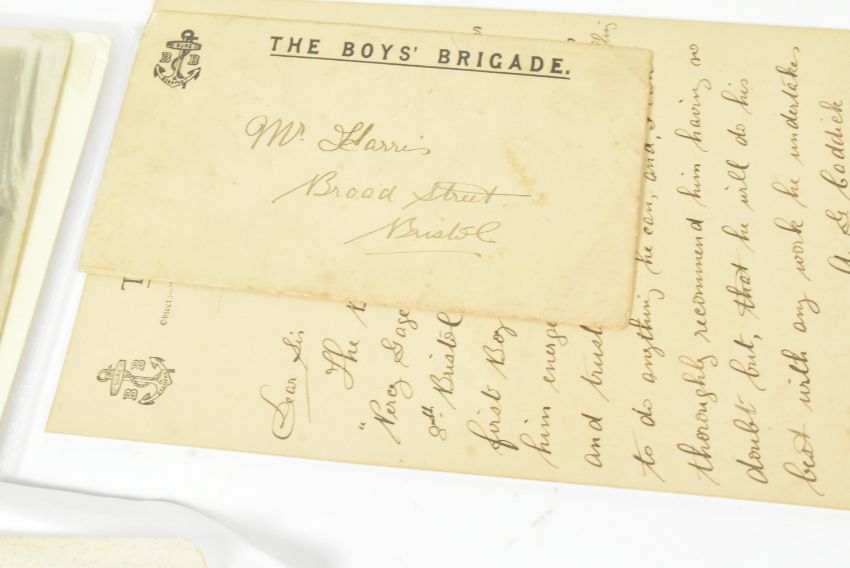 THE BOYS' BRIGADE.
SURE
B B
Mr. Harris
Broad Street
Bristol
SURE
B B
Dear Sir
The
"Percy Gage
8th Bristol
first Boy
him energe
and trust
to do anything he can, and, I can
thoroughly recommend him having no
doubt but, that he will do his
best with any work he undertakes
A. G. Caddick